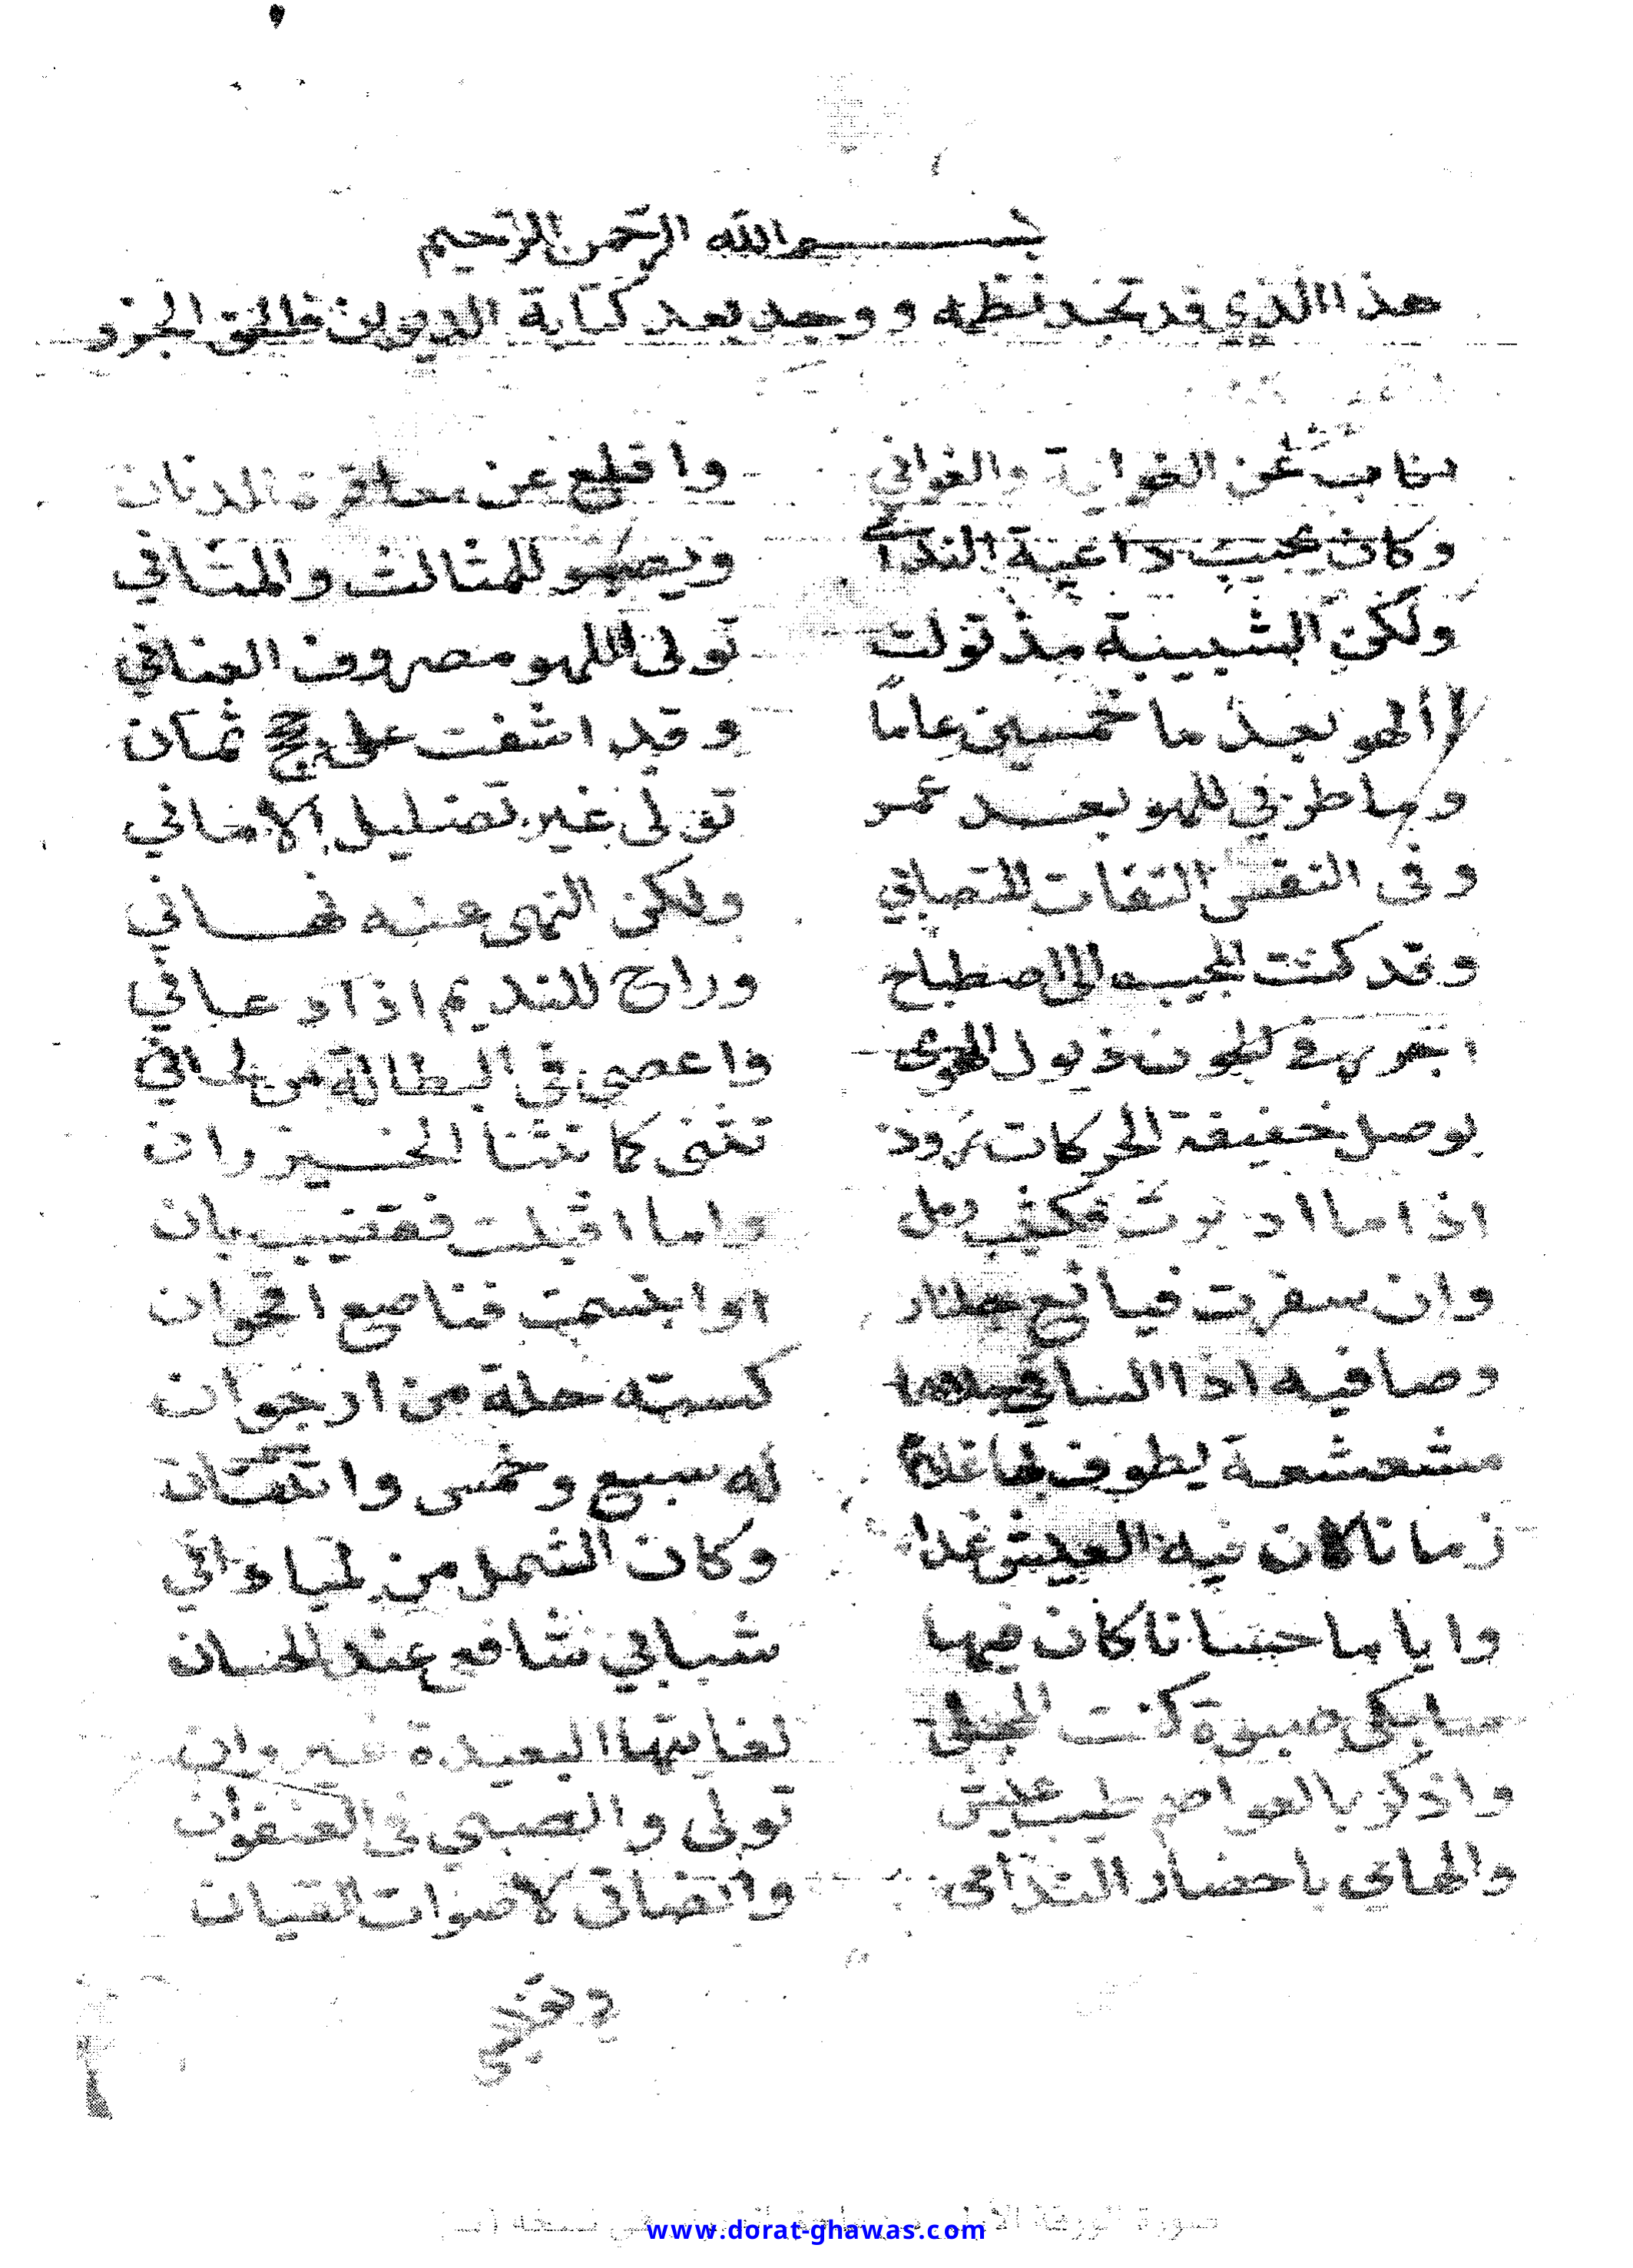 بسم الله الرحمن الرحيم
هذا الذي قد تجدد نظمه ووجد بعد كتابة الديوان فالحق الجزو
عن الغواية والغواني واقلع عن معاقرة الدنان
وكان يجيب داعية الندامى ويصبو للمثالث والمثاني
ولكن الشبيبة مذ تولت تولى اللهو مصروف العنان
أألهو بعد ما خمسين عاما وقد اشفت على حجج ثمان
وما طربي للهو بعد عمر تولى غير تضليل الاماني
وفى النفس التفات للتصابي ولكن النهى عنه نهاني
وقد كنت المجيب الى اصطباح وراح للنديم اذا دعاني
اجرر في المجون ذيول لهوى واعصى فى البطالة من لحاني
بوصل خفيفة الحركات رود تثنى كا نثنا الخيزران
اذا ما ادبرت فكثيب رمل واما اقبلت فقضيب بان
وان سفرت فيانع جلنار او ابتسمت فناصع اقحوان
وصافيه اذا الساقي جلاها كسته حلة من ارجوان
مشعشعة يطوف بها غلام له سبع وخمس واثنتان
زمانا كان فيه العيش غضا وكان الشمل من لمياء داني
وايا ما حسانا كان فيها شبابي شافع عند الحسان
سابكى صبوة كنت المجلى لغايتها البعيدة غير وان
واذكر بالعواصم طيب عيش تولى والصبى فى العنفوان
والحاني باحضار الندامى وانصاتى لاصوات القيان
www.dorat-ghawas.com